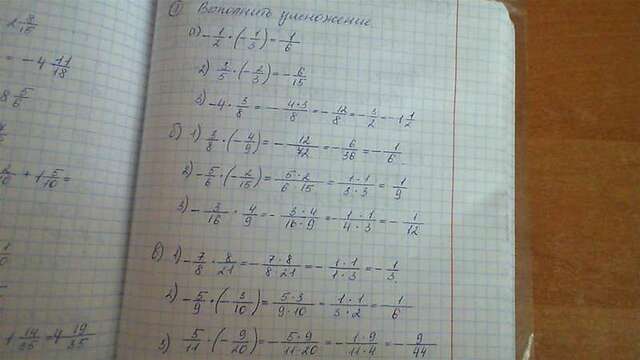 2 8/15
= -4 11/18
8 5/6
+ 1 5/10 =
1 14/35 = 4 19/35
① Выполните умножение.
а) -1/2 · (-1/3) = 1/6
2) 2/5 · (-2/3) = -6/15
3) -4 · 3/8 = - 4·3/8 = -12/8 = -3/2 = -1 1/2
б) 1) 3/8 · (-4/9) = - 12/72 = -6/36 = -1/6.
2) -5/6 · (-2/15) = 5·2/6·15 = 1·1/3·3 = 1/9
3) -3/16 · 4/9 = - 3·4/16·9 = - 1·1/4·3 = - 1/12
в) 1) -7/8 · 8/21 = - 7·8/8·21 = - 1·1/1·3 = - 1/3.
2) -5/9 · (-3/10) = 5·3/9·10 = 1·1/3·2 = 1/6
3) 5/11 · (-9/20) = - 5·9/11·20 = - 1·9/11·4 = - 9/44